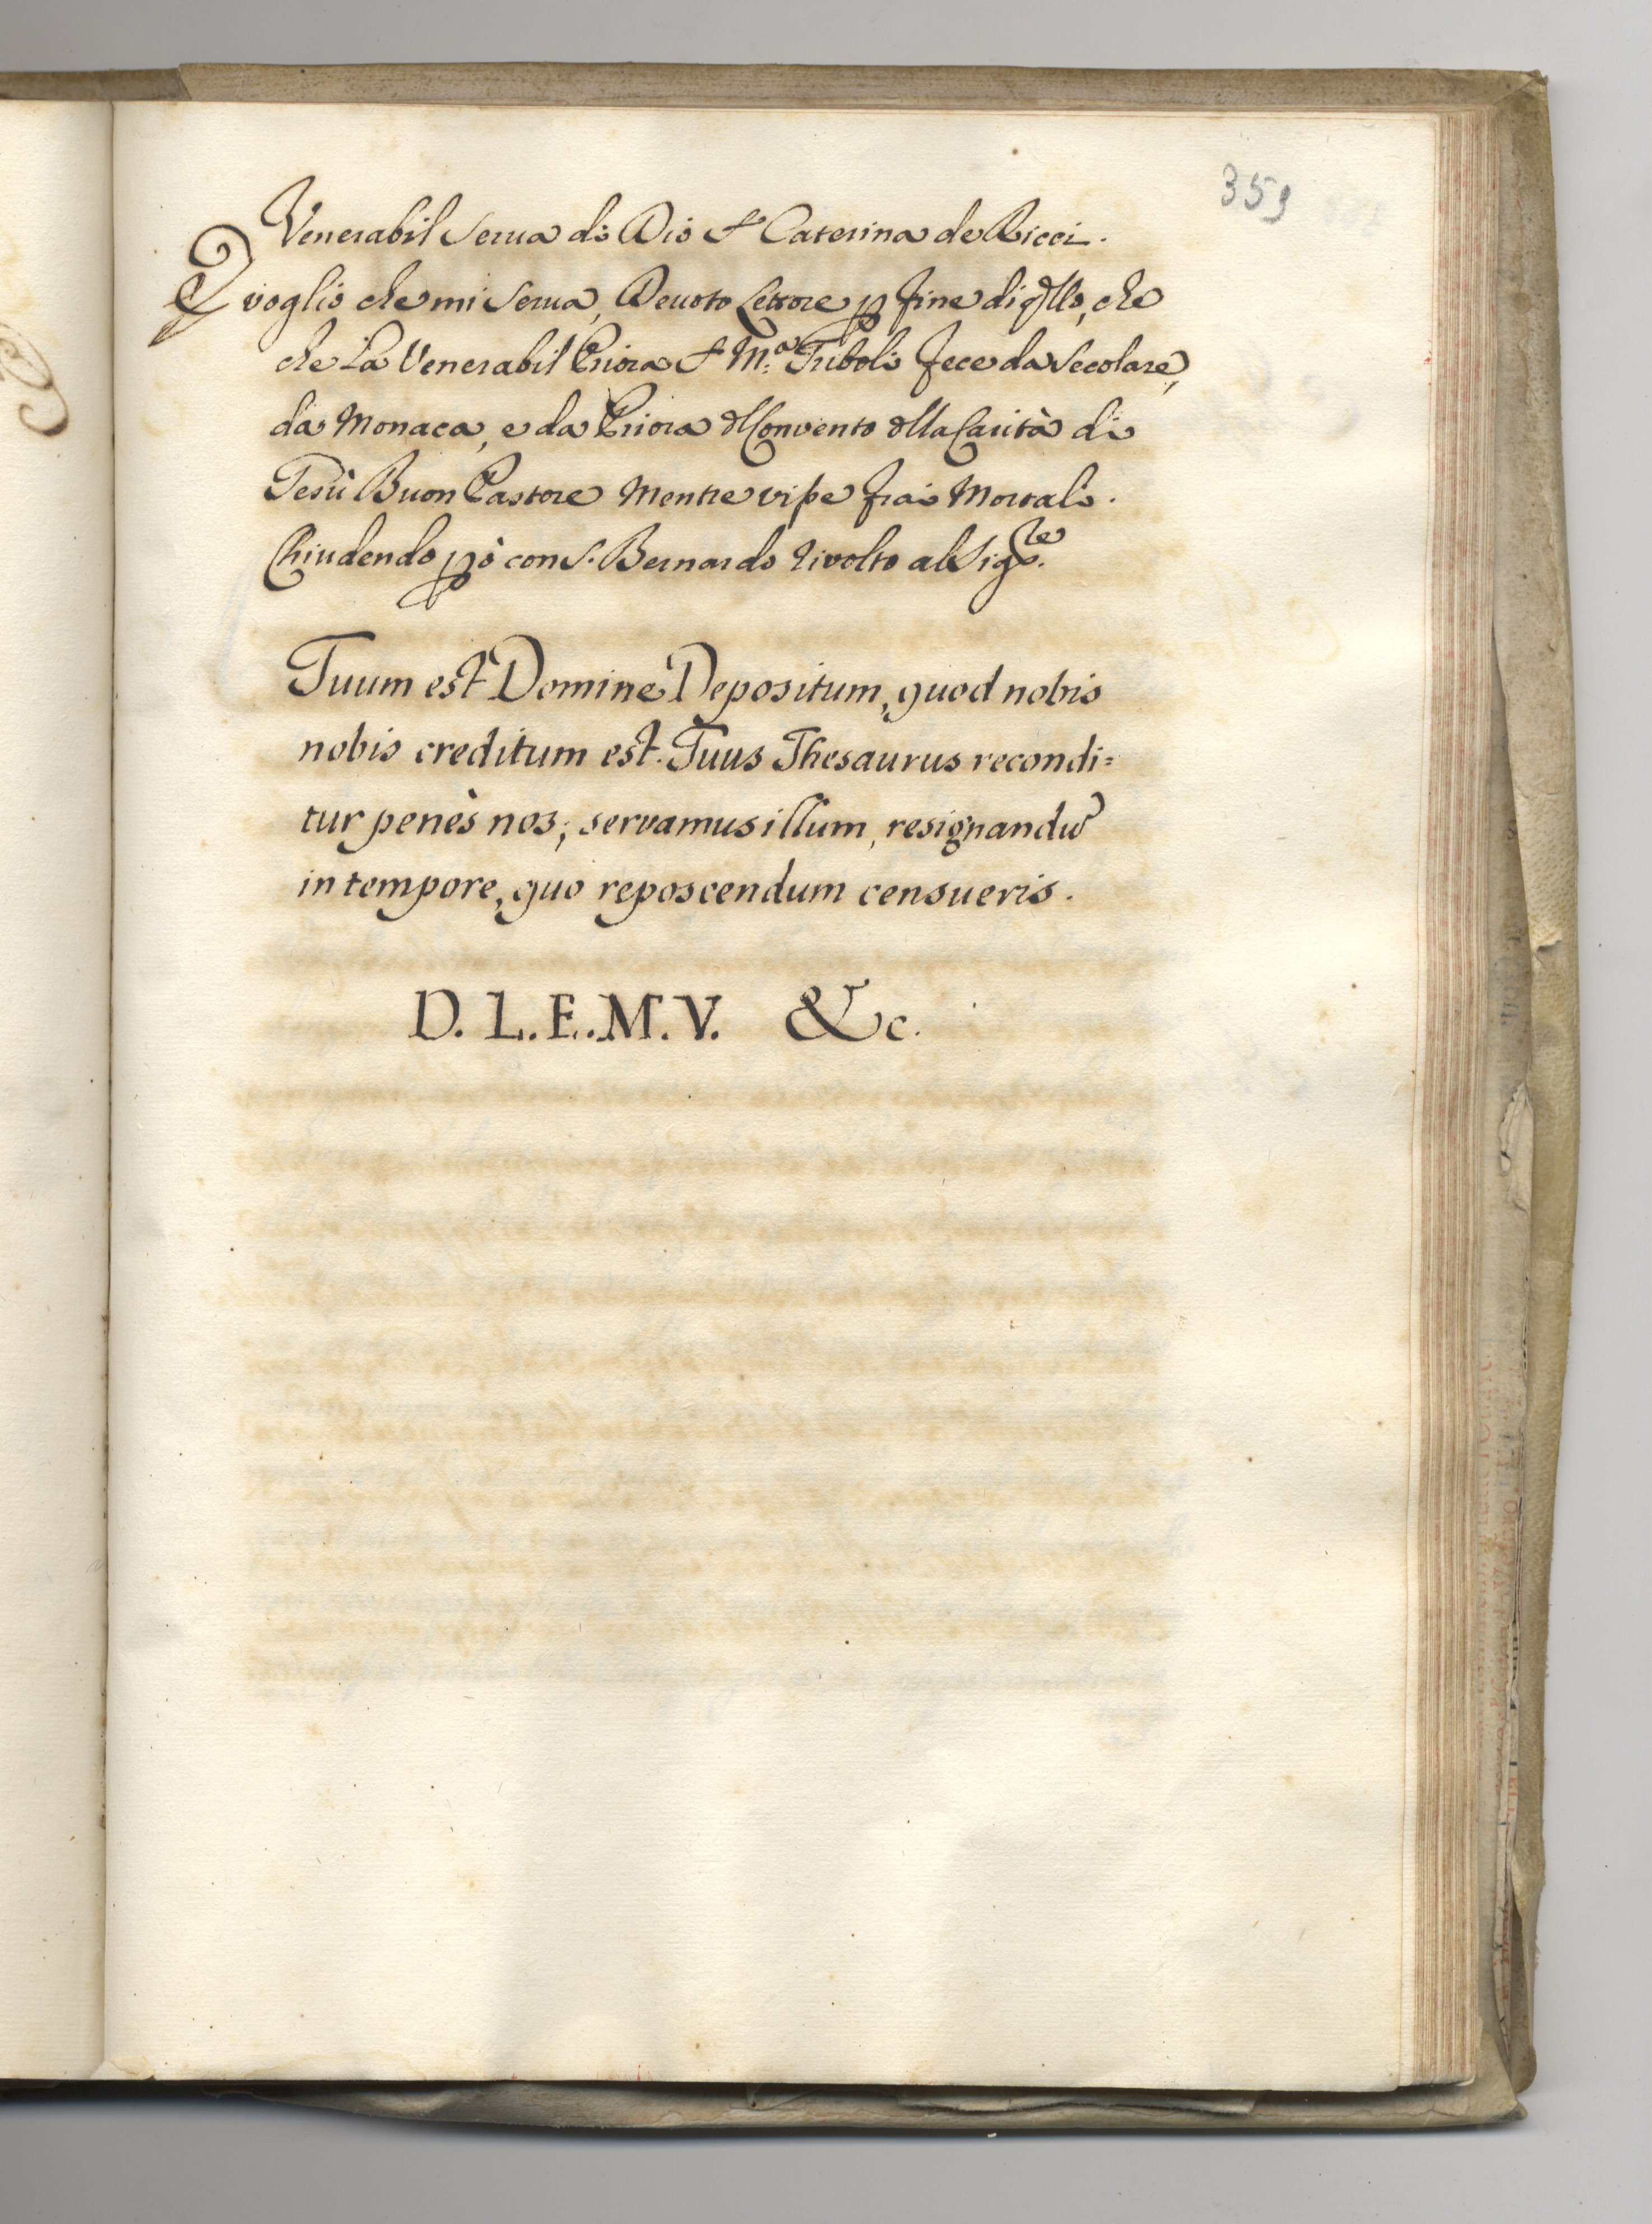 359
Venerabil Serua di Dio S.r Caterina de Ricci.
E voglio che mi serua, Deuoto Lettore p fine di qllo, che
che La Venerabil Priora S.r M.a Triboli fece da Secolare,
da Monaca, e da Priora dl Convento dlla Carità di
Gesù Buon Pastore mentre visse frai Mortali.
Chiudendo pò con S. Bernardo rivolto al Sig.re
Tuum est Domine Depositum, quod nobis
nobis creditum est. Tuus Thesaurus recondi=
tur penès nos; servamus illum, resignandũ
in tempore, quo reposcendum censueris.
D. L. E. M. V. &c.